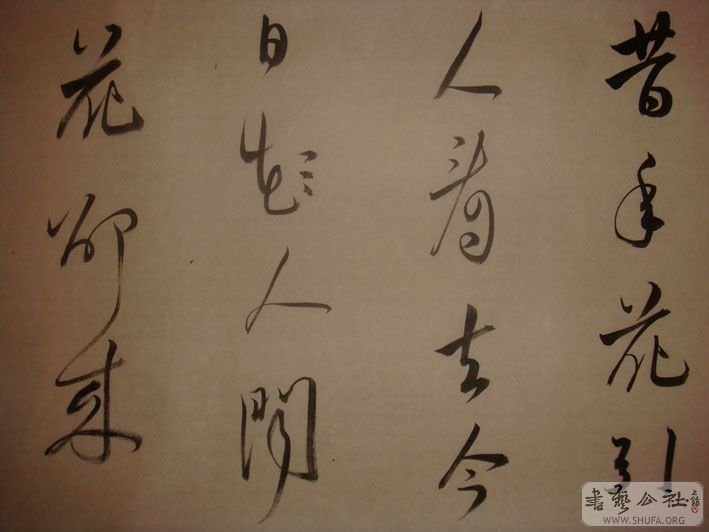 昔年花引
人看去今
日人
花卻来
書藝公社
WWW.SHUFA.ORG